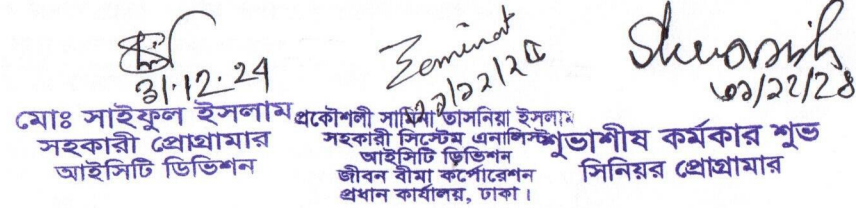 31.12.24
মোঃ সাইফুল ইসলাম
সহকারী প্রোগ্রামার
আইসিটি ডিভিশন
৩১/১২/২৪
প্রকৌশলী তাসনিয়া ইসলাম
সহকারী সিস্টেম এনালিস্ট
আইসিটি ডিভিশন
জীবন বীমা কর্পোরেশন
প্রধান কার্যালয়, ঢাকা।
৩১/১২/২৪
শুভাশীষ কর্মকার শুভ
সিনিয়র প্রোগ্রামার